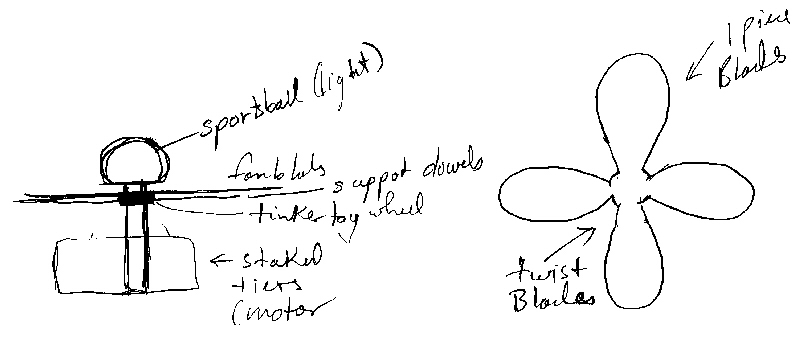 sportsball (light)
fanblads
suppot dowels
tinker toy wheel
staked
tiers
(motor
1 piece
Blades
twist
Blades